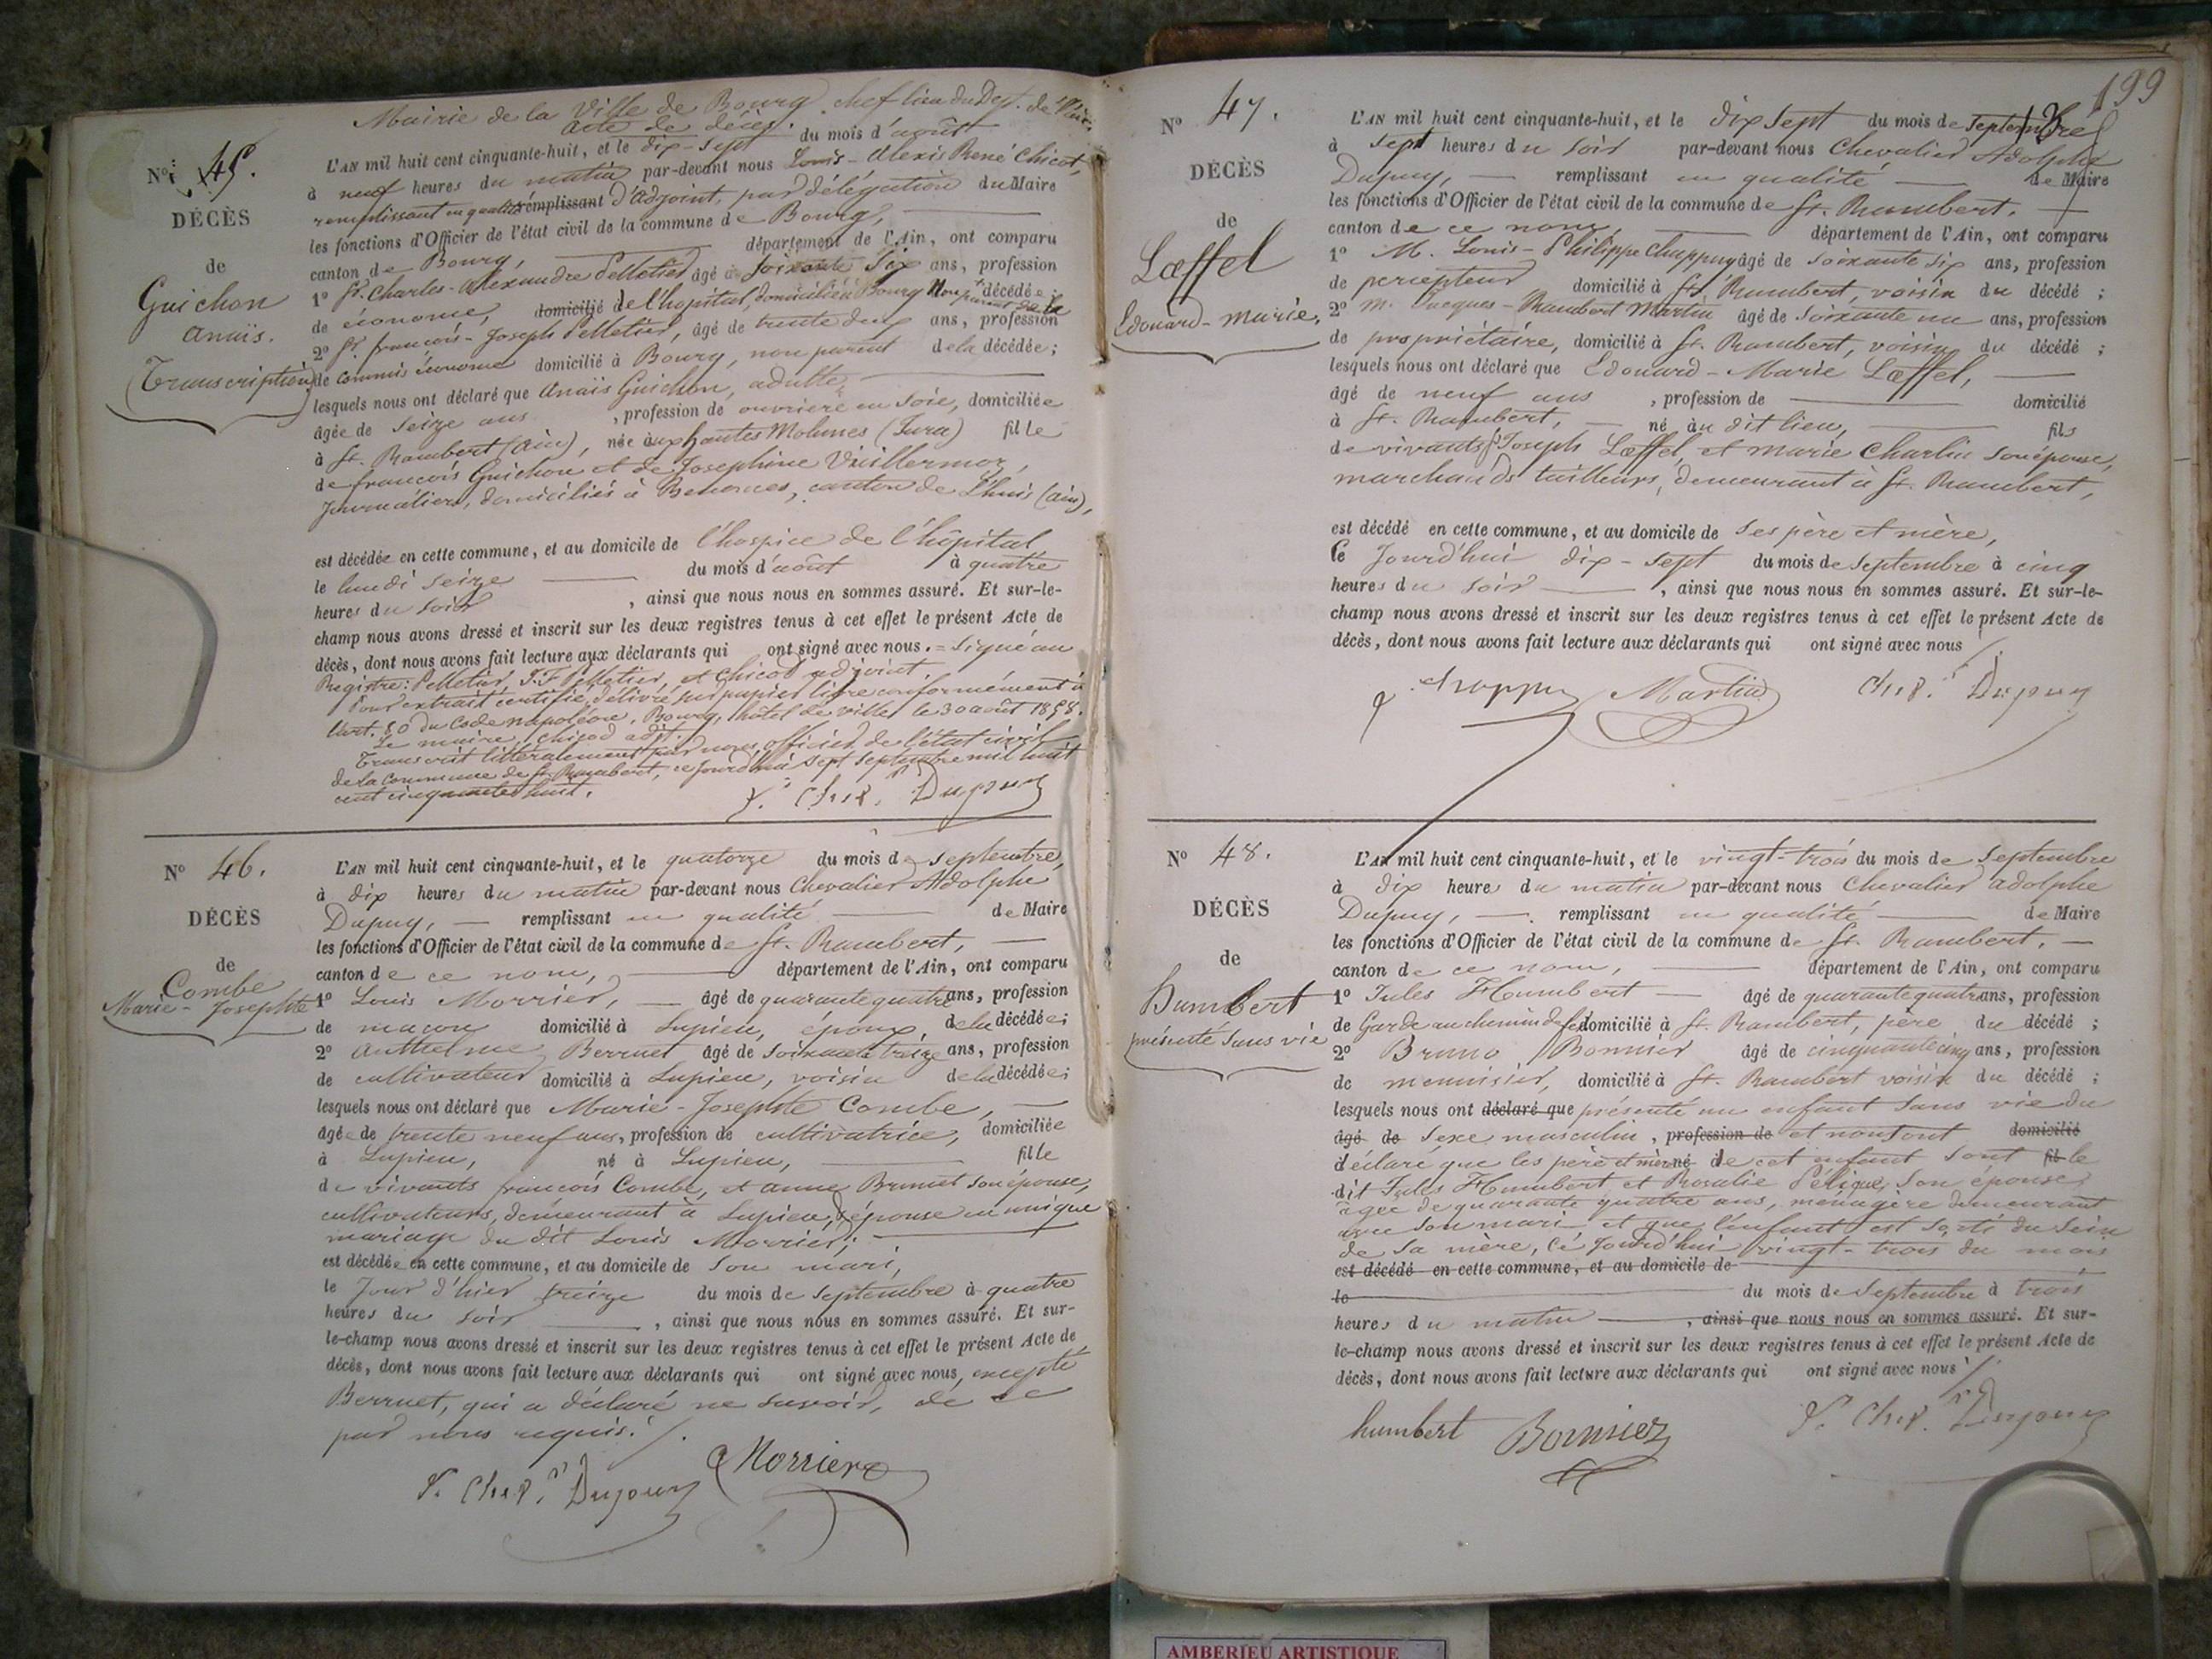 Mairie de la Ville de Bourg chef lieu du Dept. de l'Ain.
acte de décès.
N° 45.
DÉCÈS
de
Guichon
Anaïs.
Transcription
L'AN mil huit cent cinquante-huit, et le dix-sept du mois d'août
à neuf heures du matin par-devant nous Louis-Alexis René Chicot,
remplissant en qualité remplissant d'adjoint, par délégation du Maire
les fonctions d'Officier de l'état civil de la commune de Bourg,
canton de Bourg, département de l'Ain, ont comparu
1° Sr. Charles-Alexandre Pelletier âgé de soixante six ans, profession
de économe, domicilié de l'hopital, domicilié à Bourg Non parent de la décédée;
2° Sr. françois-Joseph Pelletier, âgé de trente deux ans, profession
de commis économe domicilié à Bourg, non parent de la décédée;
lesquels nous ont déclaré que Anaïs Guichon, adulte,
âgée de seize ans, profession de ouvrière en soie, domiciliée
à St. Rambert (Ain), née aux hautes Molunes (Jura) fille
de françois Guichon et de Josephine Vuillermoz,
journaliers, domiciliés à Benonces, canton de Lhuis (ain),
est décédée en cette commune, et au domicile de l'hospice de l'hôpital
le lundi seize du mois d'août à quatre
heures du soir, ainsi que nous nous en sommes assuré. Et sur-le-
champ nous avons dressé et inscrit sur les deux registres tenus à cet effet le présent Acte de
décès, dont nous avons fait lecture aux déclarants qui ont signé avec nous. = Signé au
Registre: Pelletier, J. F Pelletier, et Chicod adjoint.
Pour extrait certifié, délivré sur papier libre conformément à
l'art. 80 du Code napoléon, Bourg, hôtel de ville, le 30 août 1858.
Le maire, Chicod adjt.
Transcrit littéralement par nous, officier de l'état civil
de la commune de St. Rambert, ce jourd'hui sept septembre mil huit
cent cinquante huit.
Chev. Dupuy
N° 46.
DÉCÈS
de
Combe
Marie-Josephte
L'AN mil huit cent cinquante-huit, et le quatorze du mois de septembre,
à dix heures du matin par-devant nous Chevalier Adolphe
Dupuy, remplissant en qualité de Maire
les fonctions d'Officier de l'état civil de la commune de St. Rambert,
canton de ce nom, département de l'Ain, ont comparu
1° Louis Morrier, âgé de quarante quatre ans, profession
de maçon domicilié à Lupieu, époux de la décédée;
2° Anthelme Berruet âgé de soixante treize ans, profession
de cultivateur domicilié à Lupieu, voisin de la décédée;
lesquels nous ont déclaré que Marie-Josephte Combe,
âgée de trente neuf ans, profession de cultivatrice, domiciliée
à Lupieu, né à Lupieu, fille
de vivants françois Combe, et anne Brunet son épouse,
cultivateurs, demeurant à Lupieu, épouse en unique
mariage du dit Louis Morrier;
est décédée en cette commune, et au domicile de son mari,
le jour d'hier treize du mois de septembre à quatre
heures du soir, ainsi que nous nous en sommes assuré. Et sur-
le-champ nous avons dressé et inscrit sur les deux registres tenus à cet effet le présent Acte de
décès, dont nous avons fait lecture aux déclarants qui ont signé avec nous, excepté
Berruet, qui a déclaré ne savoir, de ce
par nous requis.
Chev. Dupuy Morrier
199
N° 47.
DÉCÈS
de
Lœffel
Edouard-Marie,
L'AN mil huit cent cinquante-huit, et le dix sept du mois de septembre
à sept heures du soir par-devant nous Chevalier Adolphe
Dupuy, remplissant en qualité de Maire
les fonctions d'Officier de l'état civil de la commune de St. Rambert.
canton de ce nom, département de l'Ain, ont comparu
1° M. Louis-Philippe Chappuy âgé de soixante six ans, profession
de percepteur domicilié à St. Rambert, voisin du décédé;
2° M. Jacques-Rambert Martin âgé de soixante un ans, profession
de propriétaire, domicilié à St. Rambert, voisin du décédé;
lesquels nous ont déclaré que Edouard-Marie Lœffel,
âgé de neuf ans, profession de domicilié
à St. Rambert, né au dit lieu, fils
de vivants Joseph Lœffel, et marie Charlin son épouse,
marchands tailleurs, demeurant à St. Rambert,
est décédé en cette commune, et au domicile de ses père et mère,
ce jourd'hui dix-sept du mois de septembre à cinq
heures du soir, ainsi que nous nous en sommes assuré. Et sur-le-
champ nous avons dressé et inscrit sur les deux registres tenus à cet effet le présent Acte de
décès, dont nous avons fait lecture aux déclarants qui ont signé avec nous
Chappuy Martin Chev. Dupuy
N° 48.
DÉCÈS
de
Humbert
présenté sans vie
L'AN mil huit cent cinquante-huit, et le vingt-trois du mois de septembre
à dix heures du matin par-devant nous Chevalier adolphe
Dupuy, remplissant en qualité de Maire
les fonctions d'Officier de l'état civil de la commune de St. Rambert.
canton de ce nom, département de l'Ain, ont comparu
1° Jules Humbert âgé de quarante quatre ans, profession
de Garde au chemin de fer domicilié à St. Rambert, père du décédé;
2° Bruno Bonnier âgé de cinquante cinq ans, profession
de menuisier, domicilié à St. Rambert voisin du décédé;
lesquels nous ont déclaré que présenté un enfant sans vie du
âgé de sexe masculin, profession de et nous ont domicilié
déclaré que les père et mère né de cet enfant sont fils le
dit Jules Humbert et Rosalie Pélique son épouse,
agée de quarante quatre ans, ménagère demeurant
avec son mari et que l'enfant est sorti du sein
de sa mère, ce jourd'hui vingt-trois du mois
est décédé en cette commune, et au domicile de
le du mois de septembre à trois
heures du matin, ainsi que nous nous en sommes assuré. Et sur-
le-champ nous avons dressé et inscrit sur les deux registres tenus à cet effet le présent Acte de
décès, dont nous avons fait lecture aux déclarants qui ont signé avec nous
humbert Bonnier Chev. Dupuy
AMBERIEU ARTISTIQUE